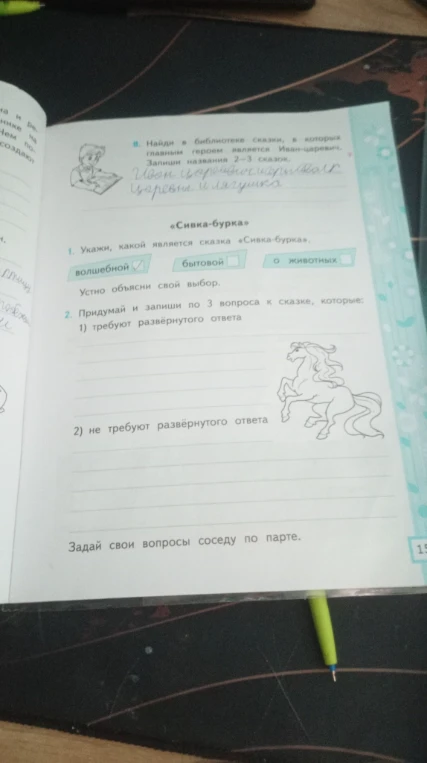 8. Найди в библиотеке сказки, в которых
главным героем является Иван-царевич.
Запиши названия 2–3 сказок.
Иван царевич и серый волк
Царевна лягушка
«Сивка-бурка»
1. Укажи, какой является сказка «Сивка-бурка».
волшебной ✓ бытовой о животных
Устно объясни свой выбор.
2. Придумай и запиши по 3 вопроса к сказке, которые:
1) требуют развёрнутого ответа
2) не требуют развёрнутого ответа
Задай свои вопросы соседу по парте.